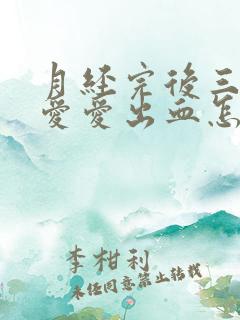 月经完後三
爱爱出血怎
李柑利
未经同意禁止转载